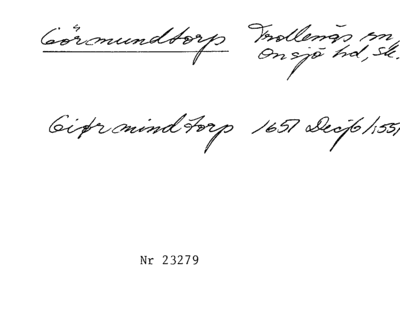 Görmundtorp Trollenäs sn,
Onsjö hd, Sk.
Giörmindtorp 1651 Decjb 1551
Nr 23279